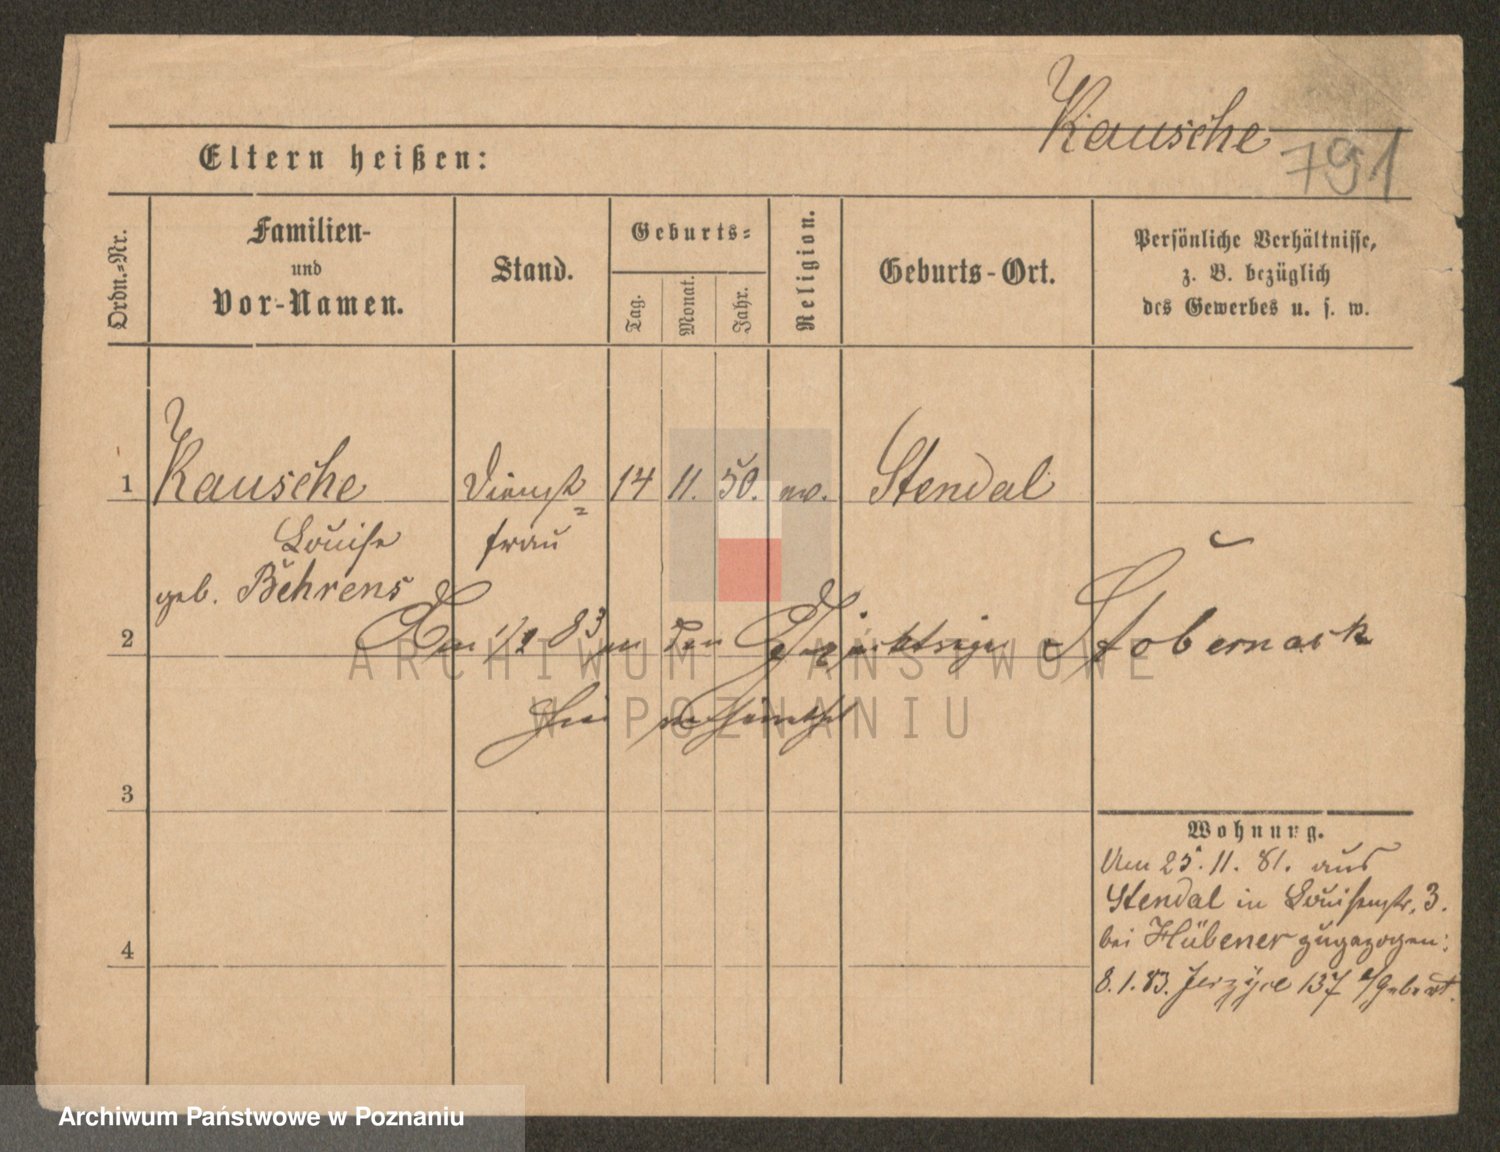 Kausche
791
Eltern heißen:
Ordn.=Nr.
Familien-
und
Vor-Namen.
Stand.
Geburts=
Tag.
Monat.
Jahr.
Religion.
Geburts-Ort.
Persönliche Verhältnisse,
z. B. bezüglich
des Gewerbes u. s. w.
1 Kausche Dienst= 14 11. 50. ev. Stendal
Louise frau
geb. Behrens
2 83 den Stobernack
3
Wohnung.
Am 25.11.81. aus
Stendal in Louisenstr. 3.
bei Hübener zugezogen:
4
8.1.83. Jerzyce 137
ARCHIWUM PAŃSTWOWE
W POZNANIU
Archiwum Państwowe w Poznaniu